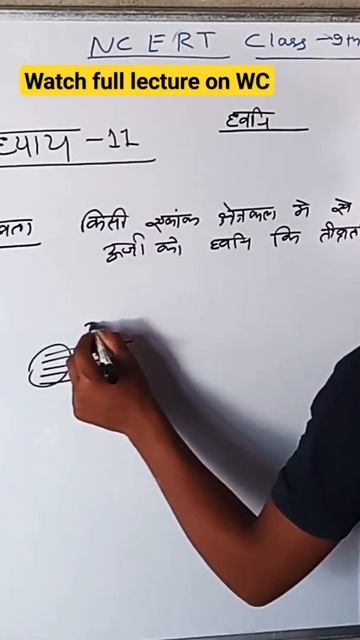 NCERT Class → 9th
Watch full lecture on WC
ध्वनि
ध्याय - 11
किसी एकांक क्षेत्रफल मे से
ऊर्जा को ध्वनि कि तीव्रता